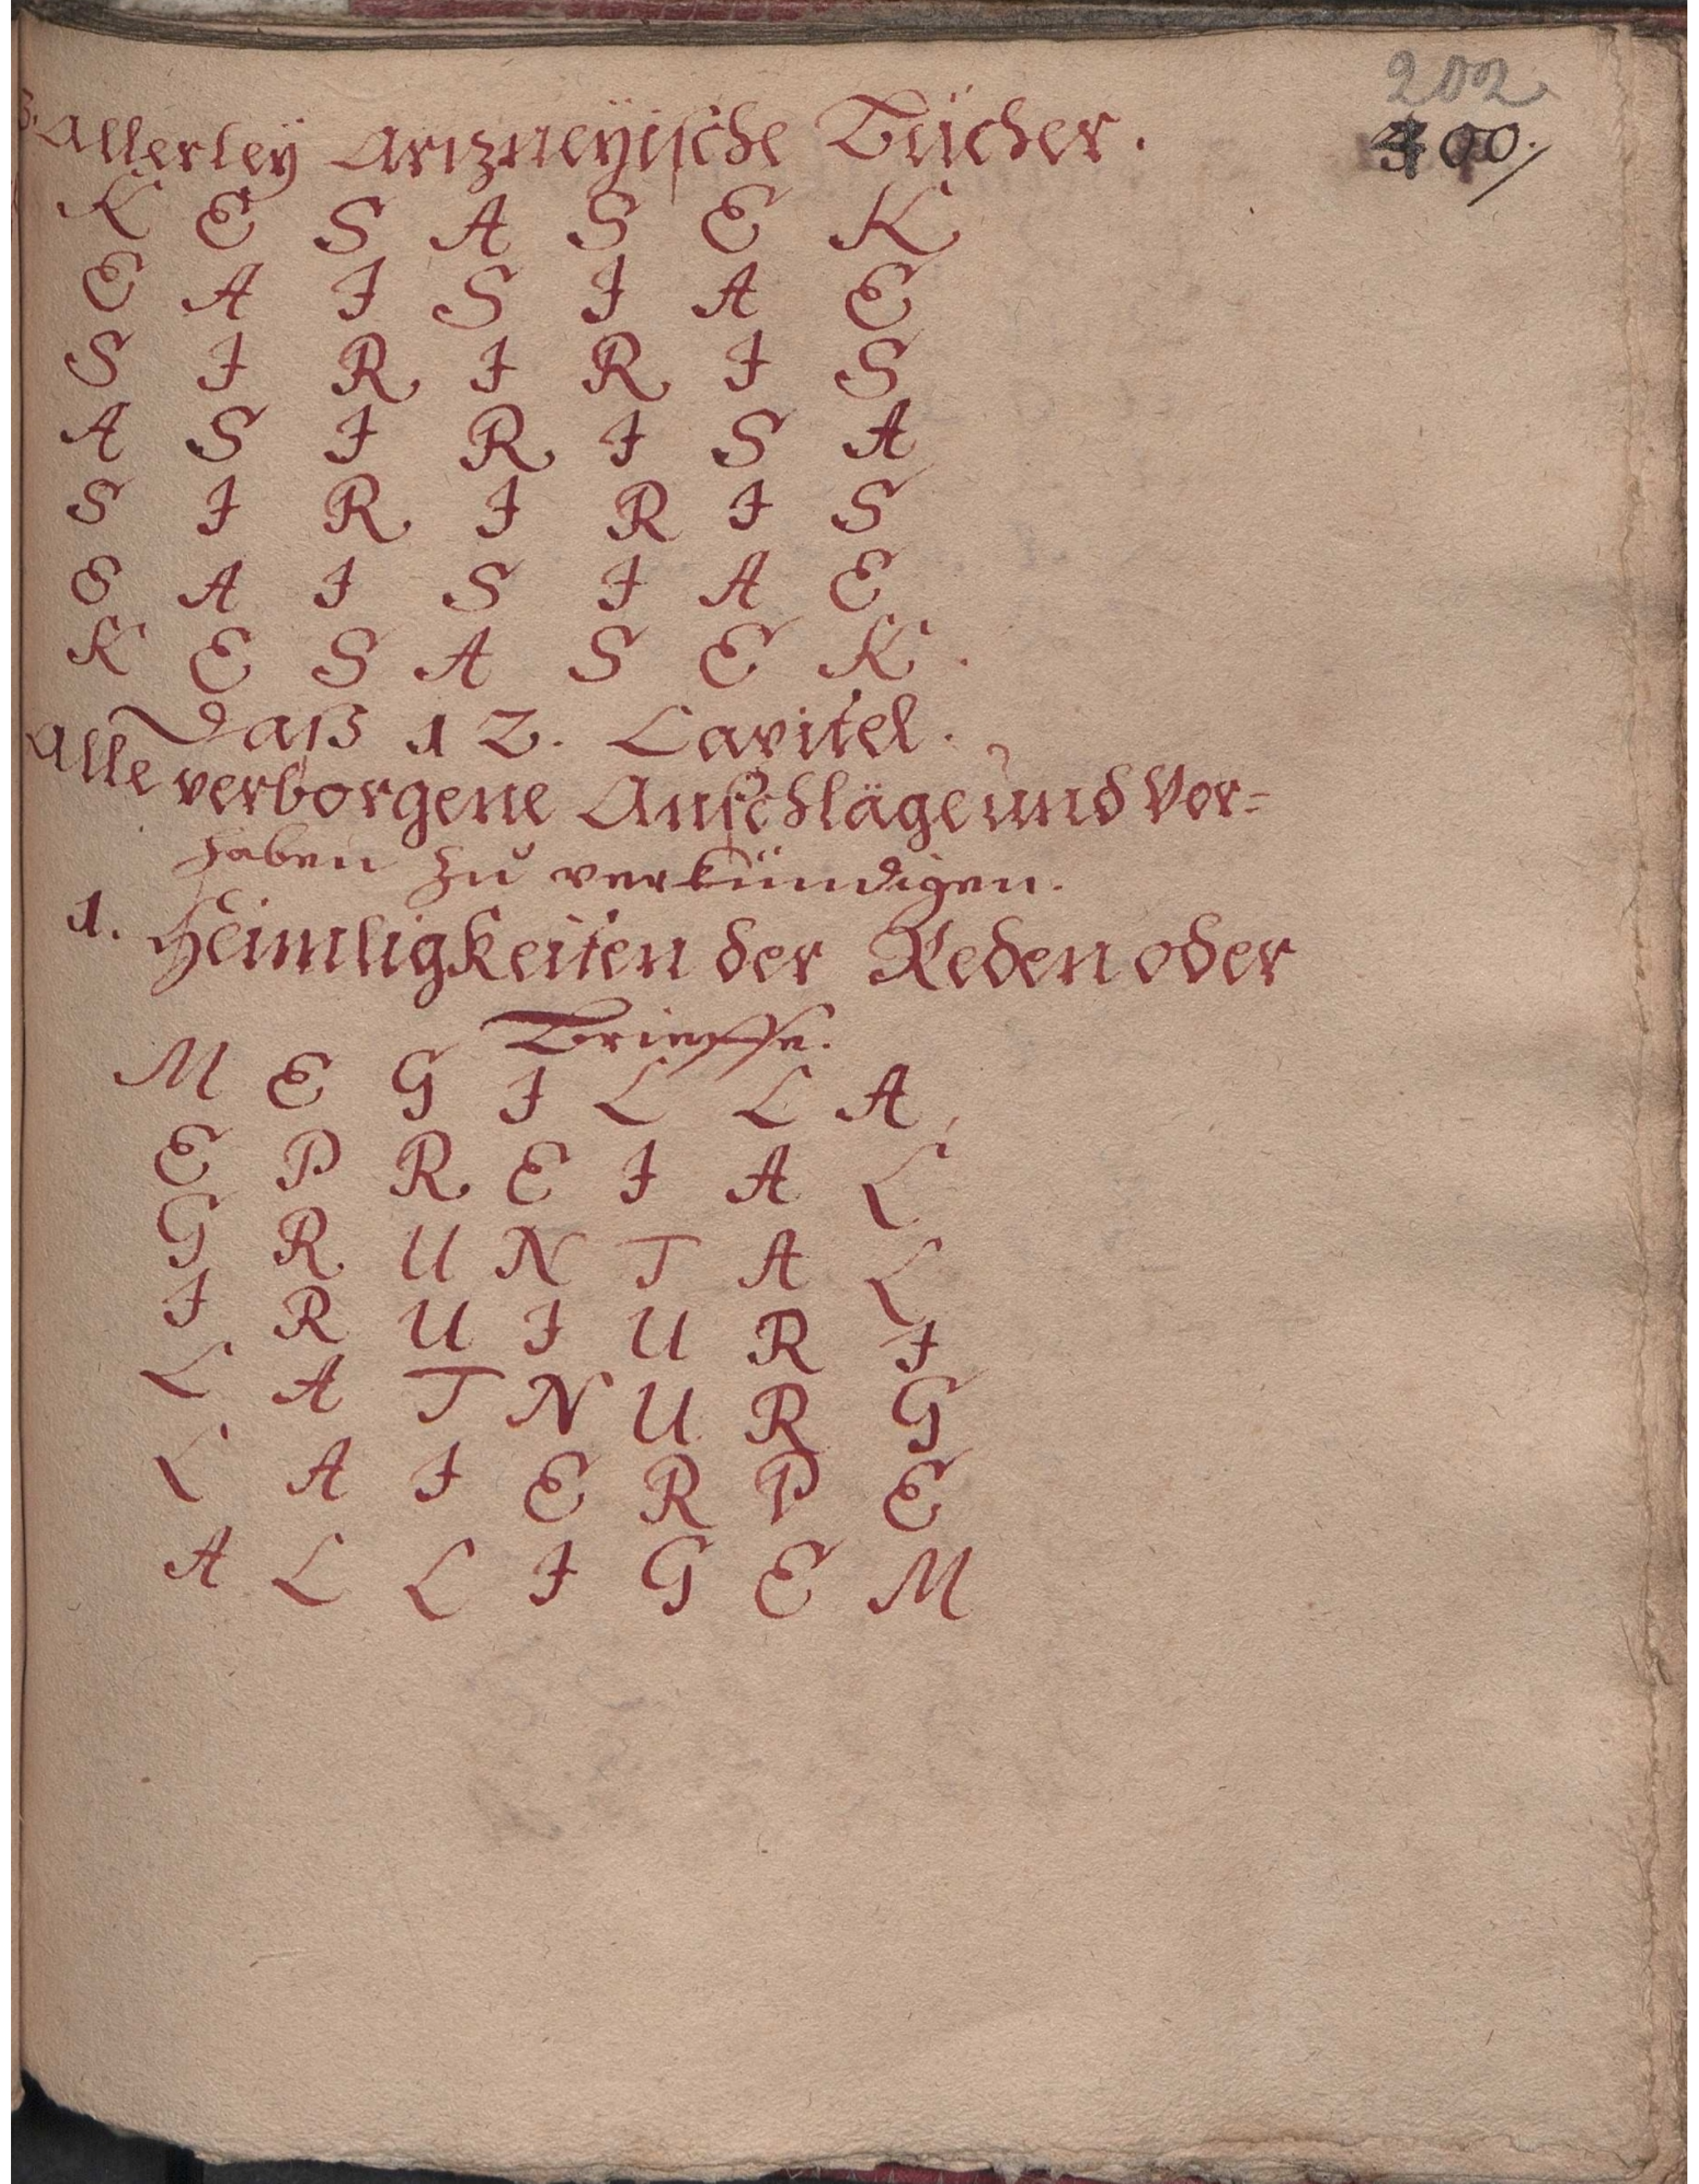 202
400.
3. Allerleÿ Artzneÿische Bücher.
K E S A S E K
E A I S I A E
S I R I R I S
A S I R I S A
S I R I R I S
E A I S I A E
K E S A S E K.
Daß 12. Capitel.
Alle verborgene Anschläge und Vor=
haben zu verkündigen.
1. Heimligkeiten der Reden oder
Brieffe.
M E G I L L A
E P R E I A L
G R U N T A L
I R U I U R I
L A T N U R G
L A I E R P E
A L L I G E M